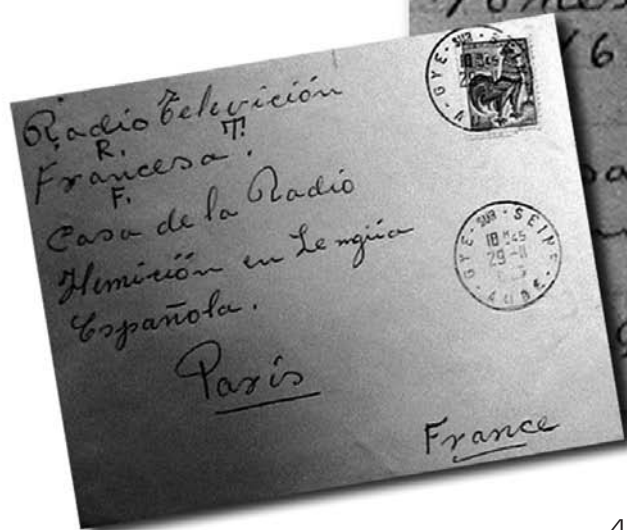 Radio Televición
R. T.
Francesa.
F.
Casa de la Radio
Hemición en Lengüa
Española.
París
France
GYE · SUR · SEINE
18 H45
29 - 11
AUBE
6
4